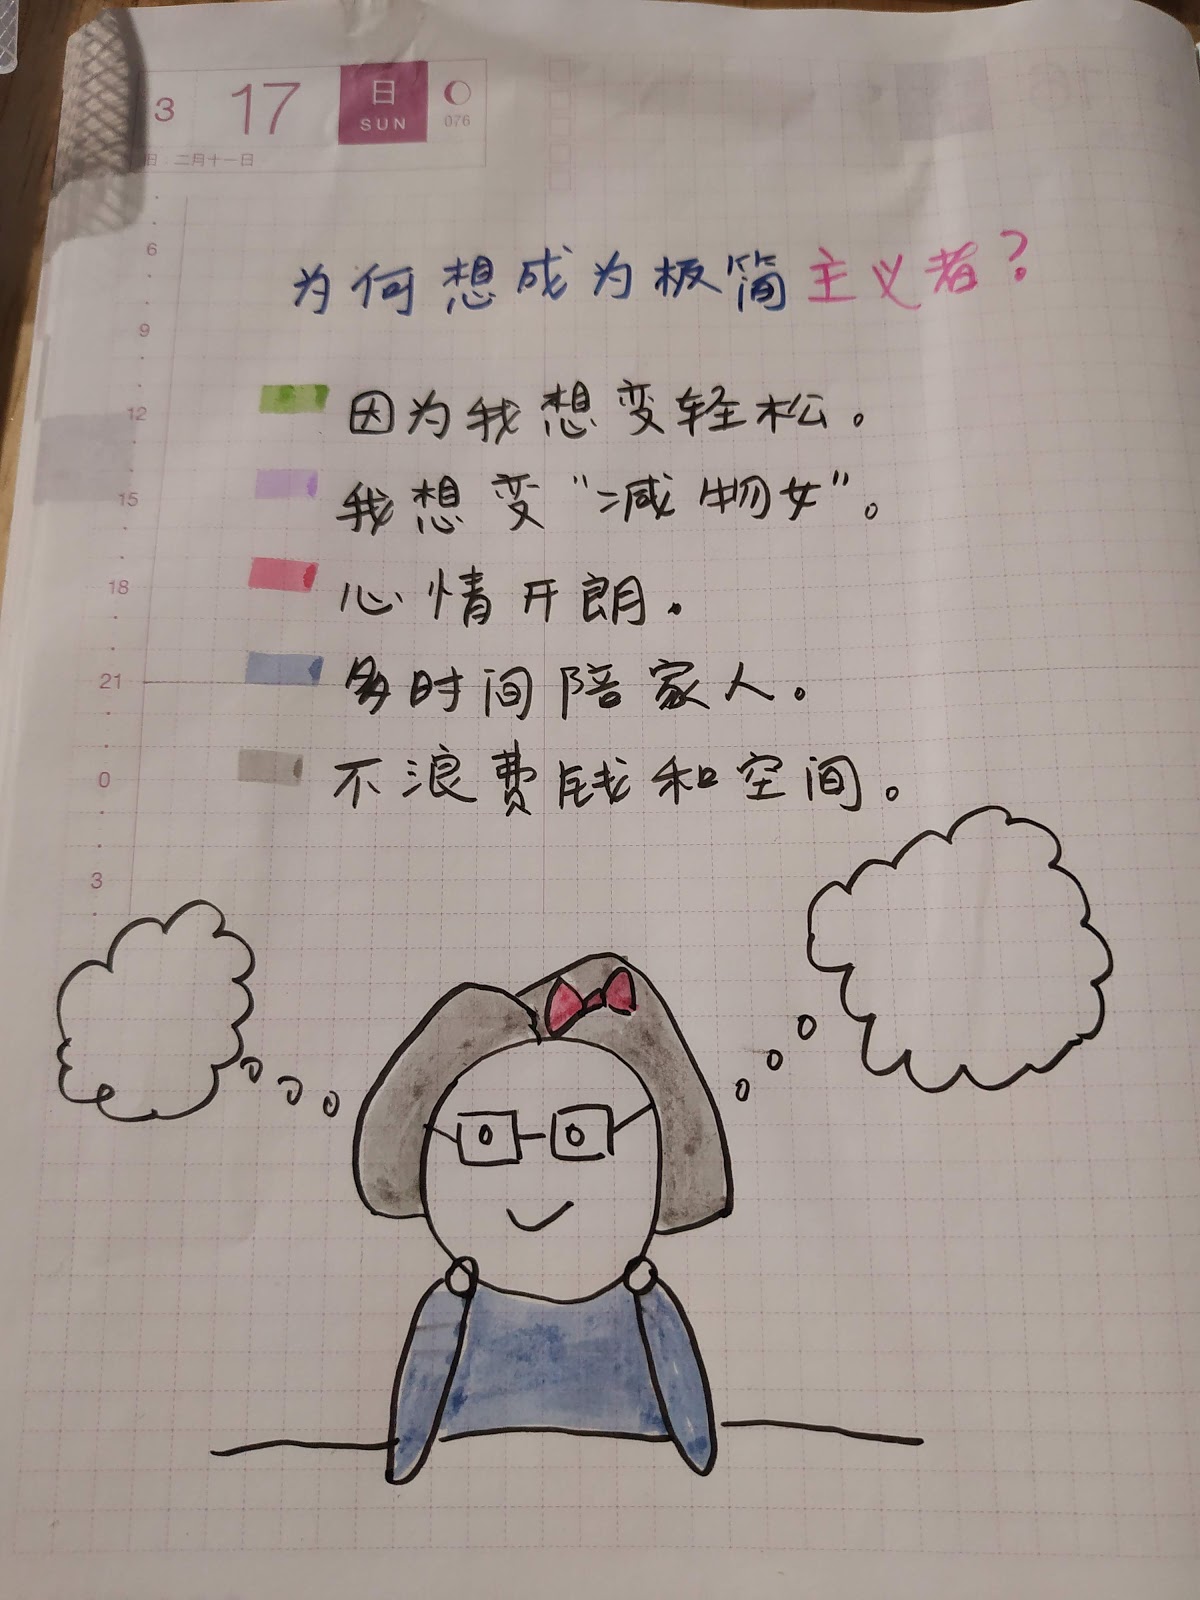 3 17 日 SUN 076
日 二月十一日
6
为何想成为极简主义者？
9
因为我想变轻松。
12
我想变“减物女”。
15
心情开朗。
18
多时间陪家人。
21
不浪费钱和空间。
0
3